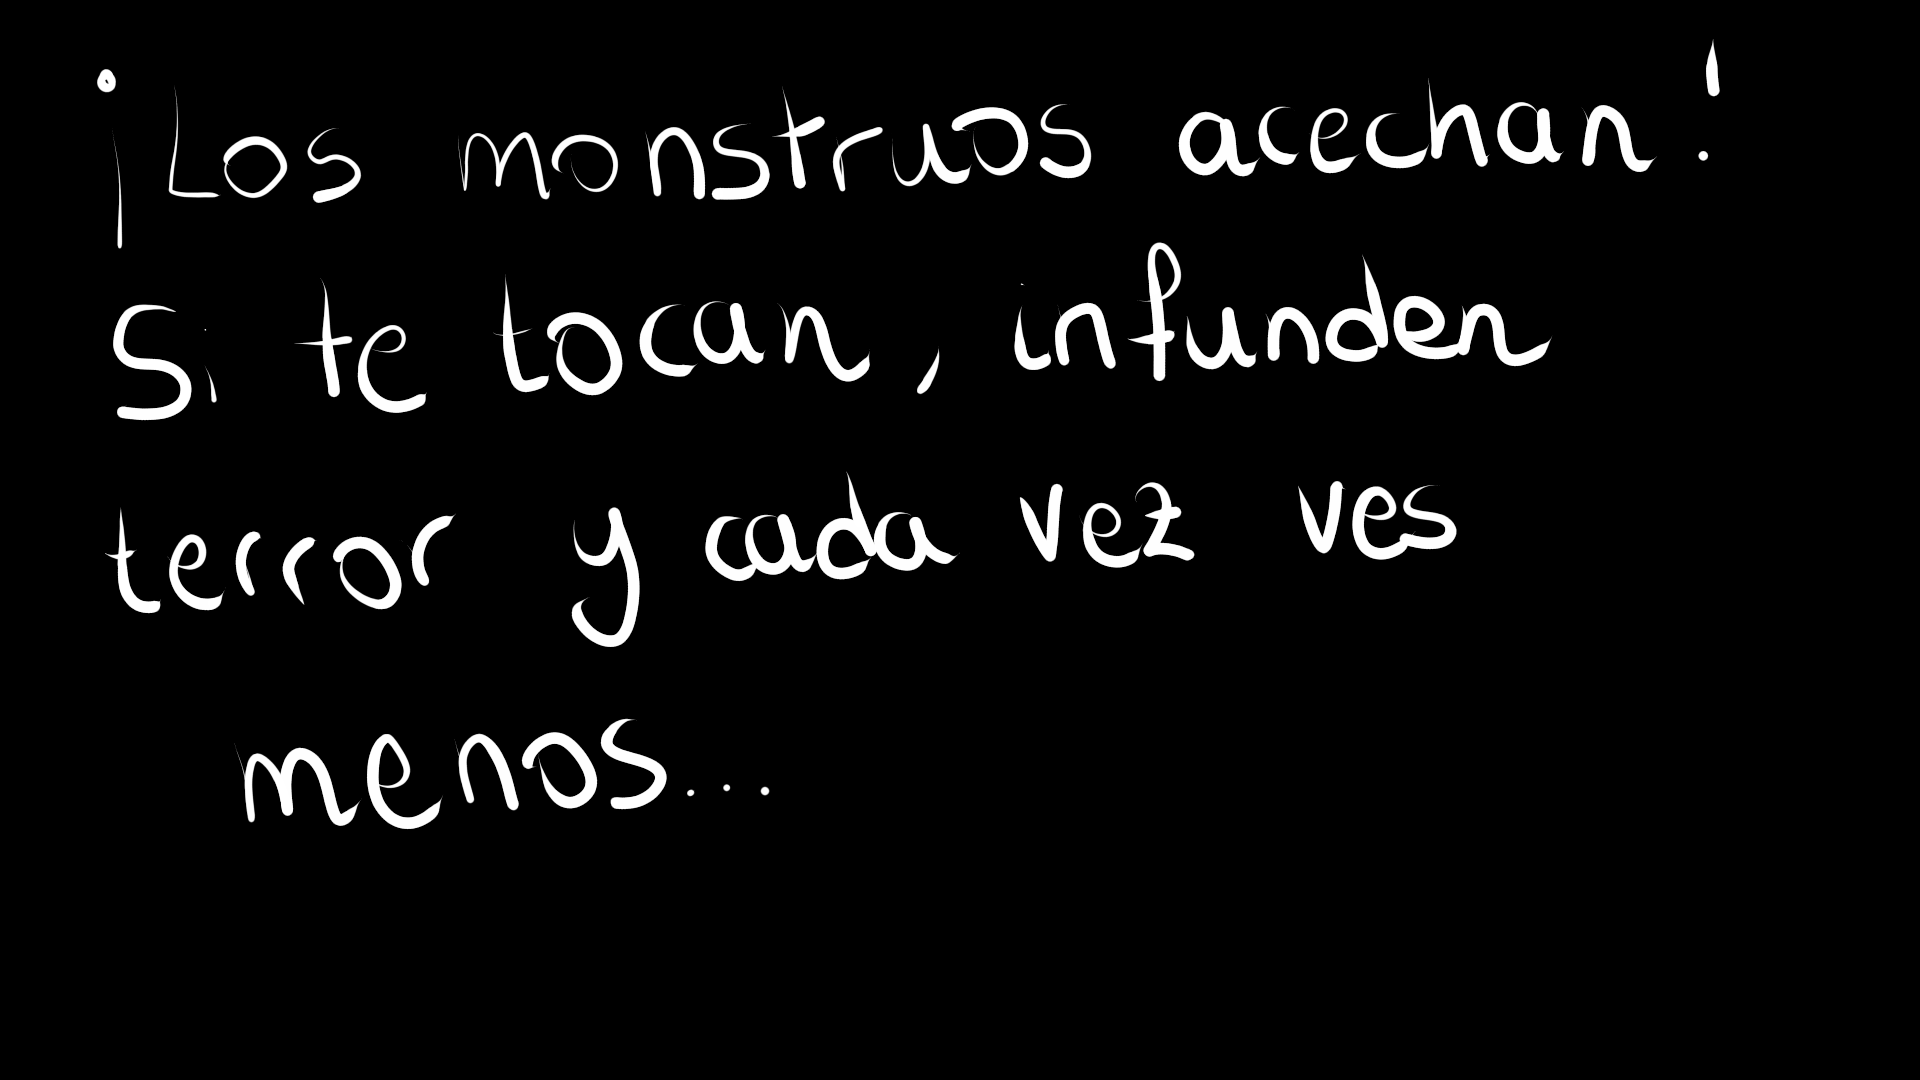 ¡Los monstruos acechan!
Si te tocan, infunden
terror y cada vez ves
menos...